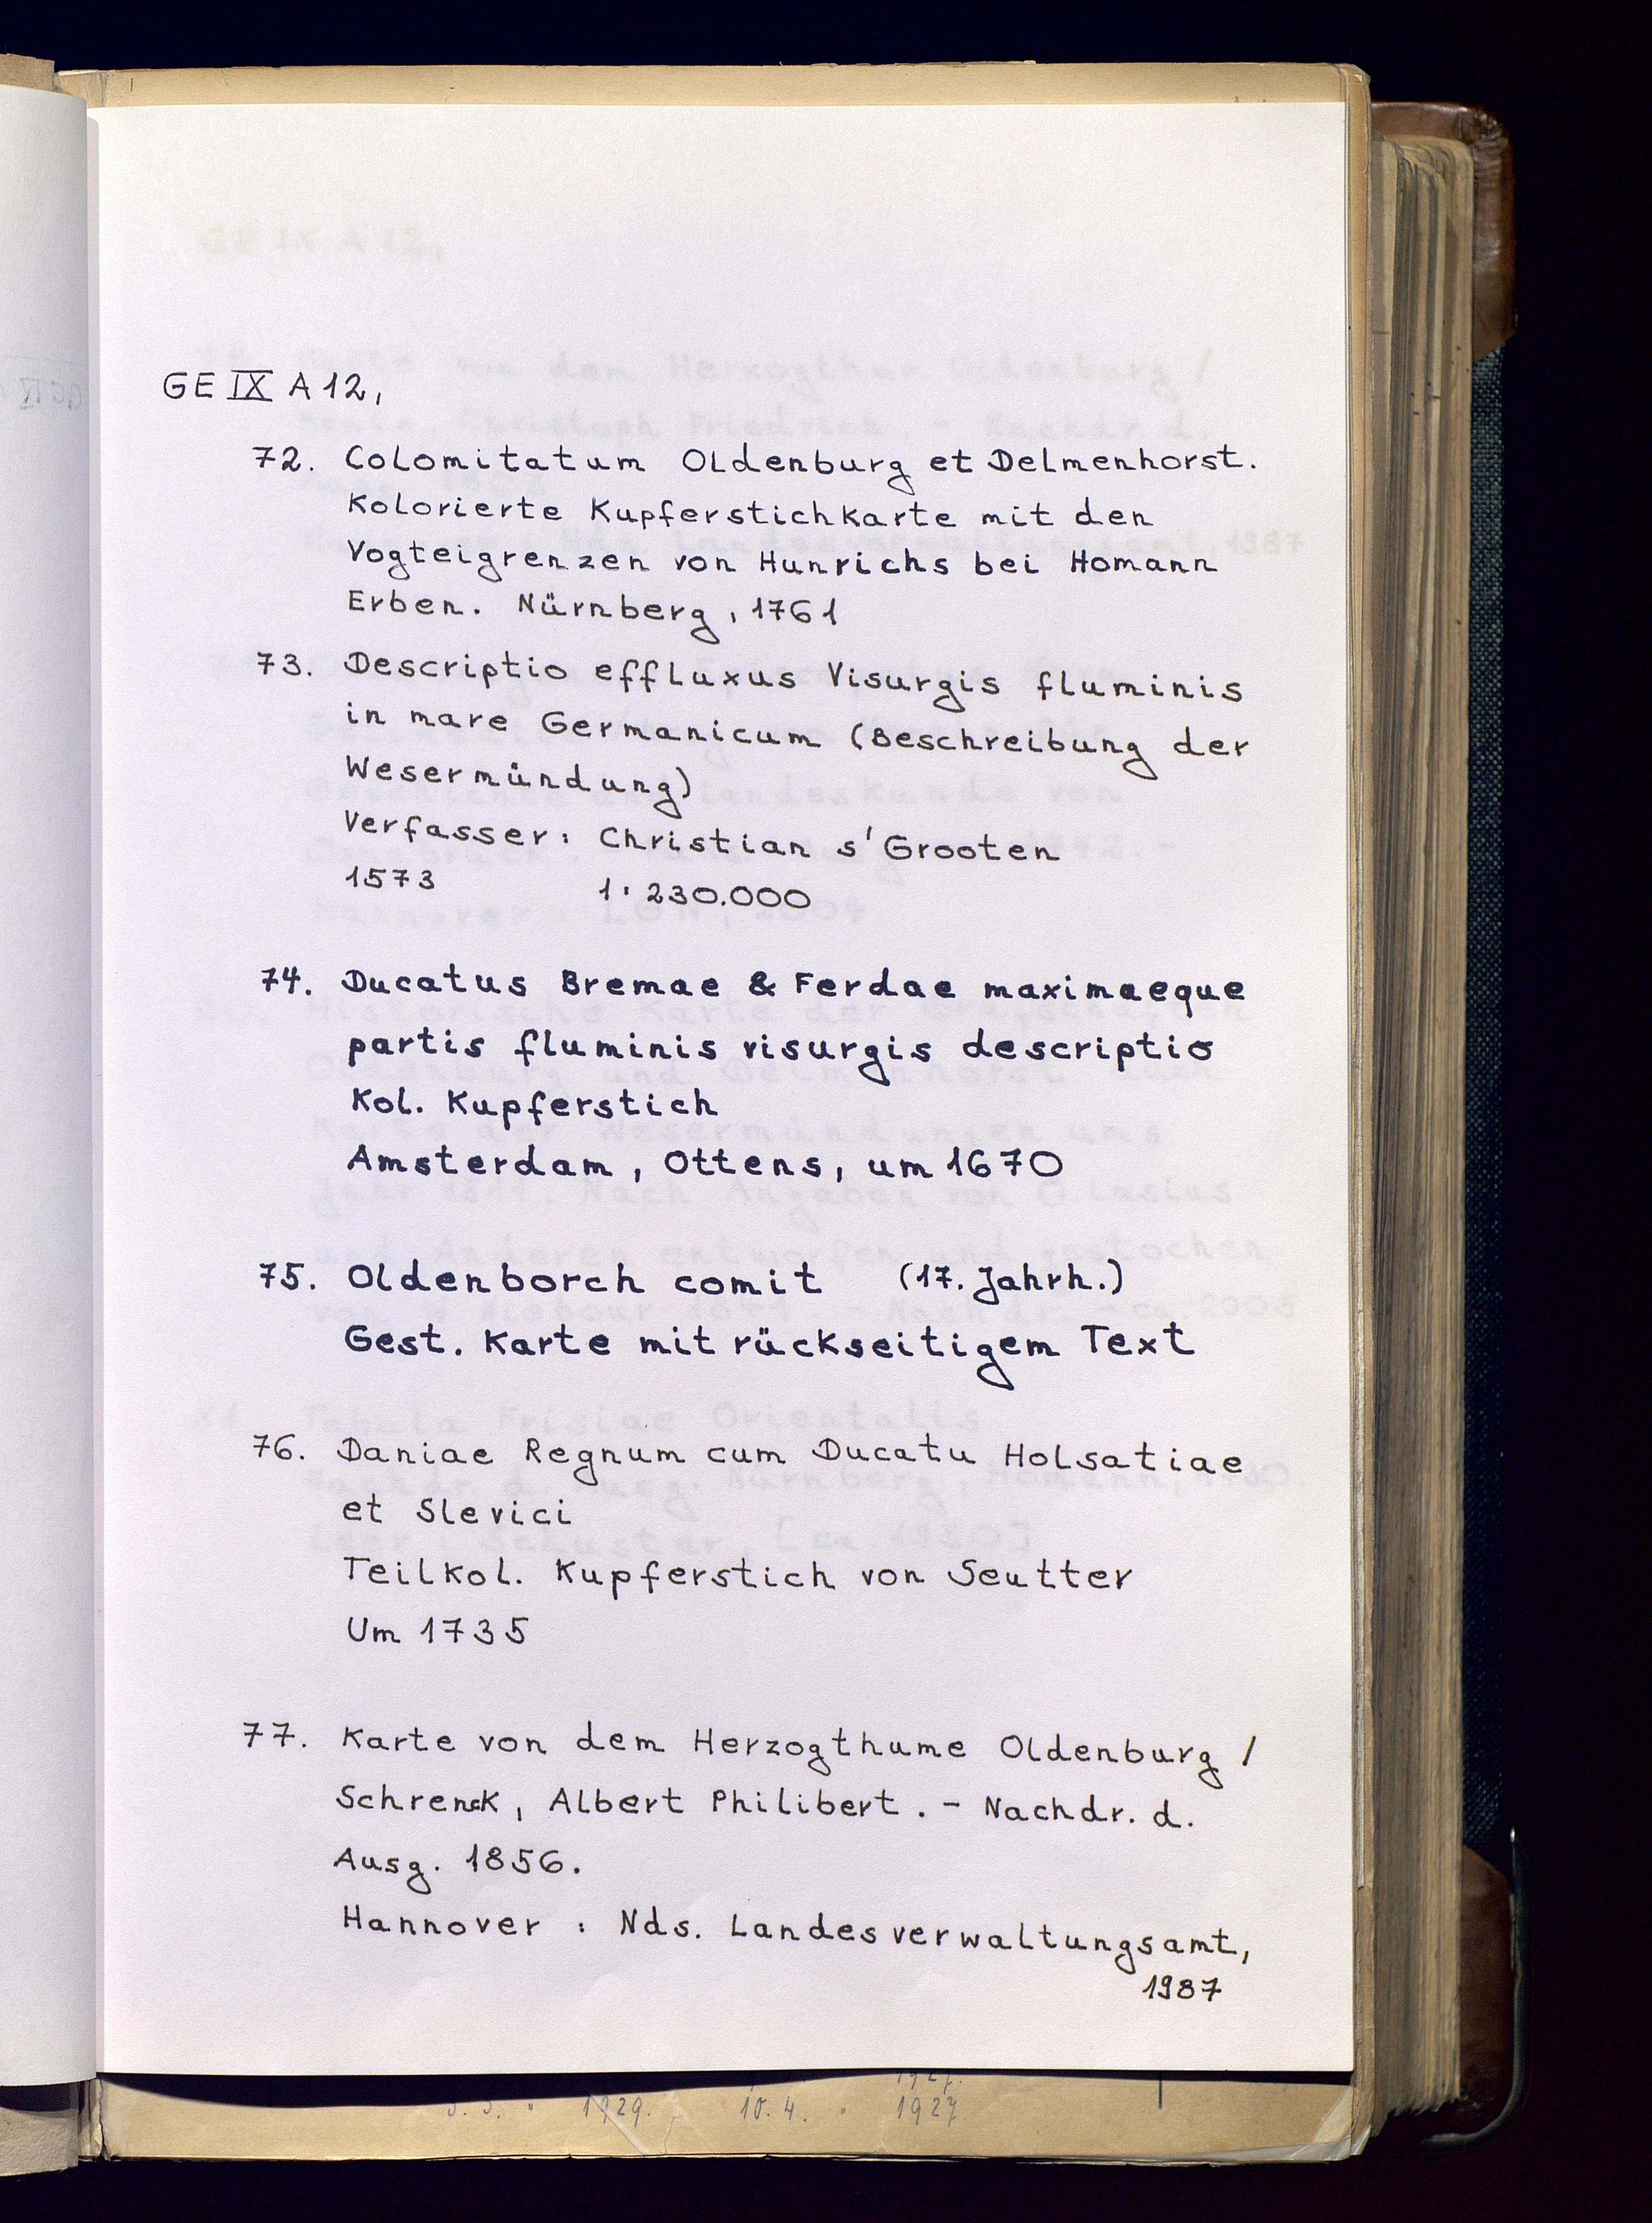 GE IX A 12,
72. Colomitatum Oldenburg et Delmenhorst.
Kolorierte Kupferstichkarte mit den
Vogteigrenzen von Hunrichs bei Homann
Erben. Nürnberg, 1761
73. Descriptio effluxus Visurgis fluminis
in mare Germanicum (Beschreibung der
Wesermündung)
Verfasser: Christian s'Grooten
1573 1:230.000
74. Ducatus Bremae & Ferdae maximaeque
partis fluminis visurgis descriptio
Kol. Kupferstich
Amsterdam, Ottens, um 1670
75. Oldenborch comit (17. Jahrh.)
Gest. Karte mit rückseitigem Text
76. Daniae Regnum cum Ducatu Holsatiae
et Slevici
Teilkol. Kupferstich von Seutter
Um 1735
77. Karte von dem Herzogthume Oldenburg /
Schrenck, Albert Philibert. - Nachdr. d.
Ausg. 1856.
Hannover : Nds. Landesverwaltungsamt,
1987
1929. 10. 4. " 1927.